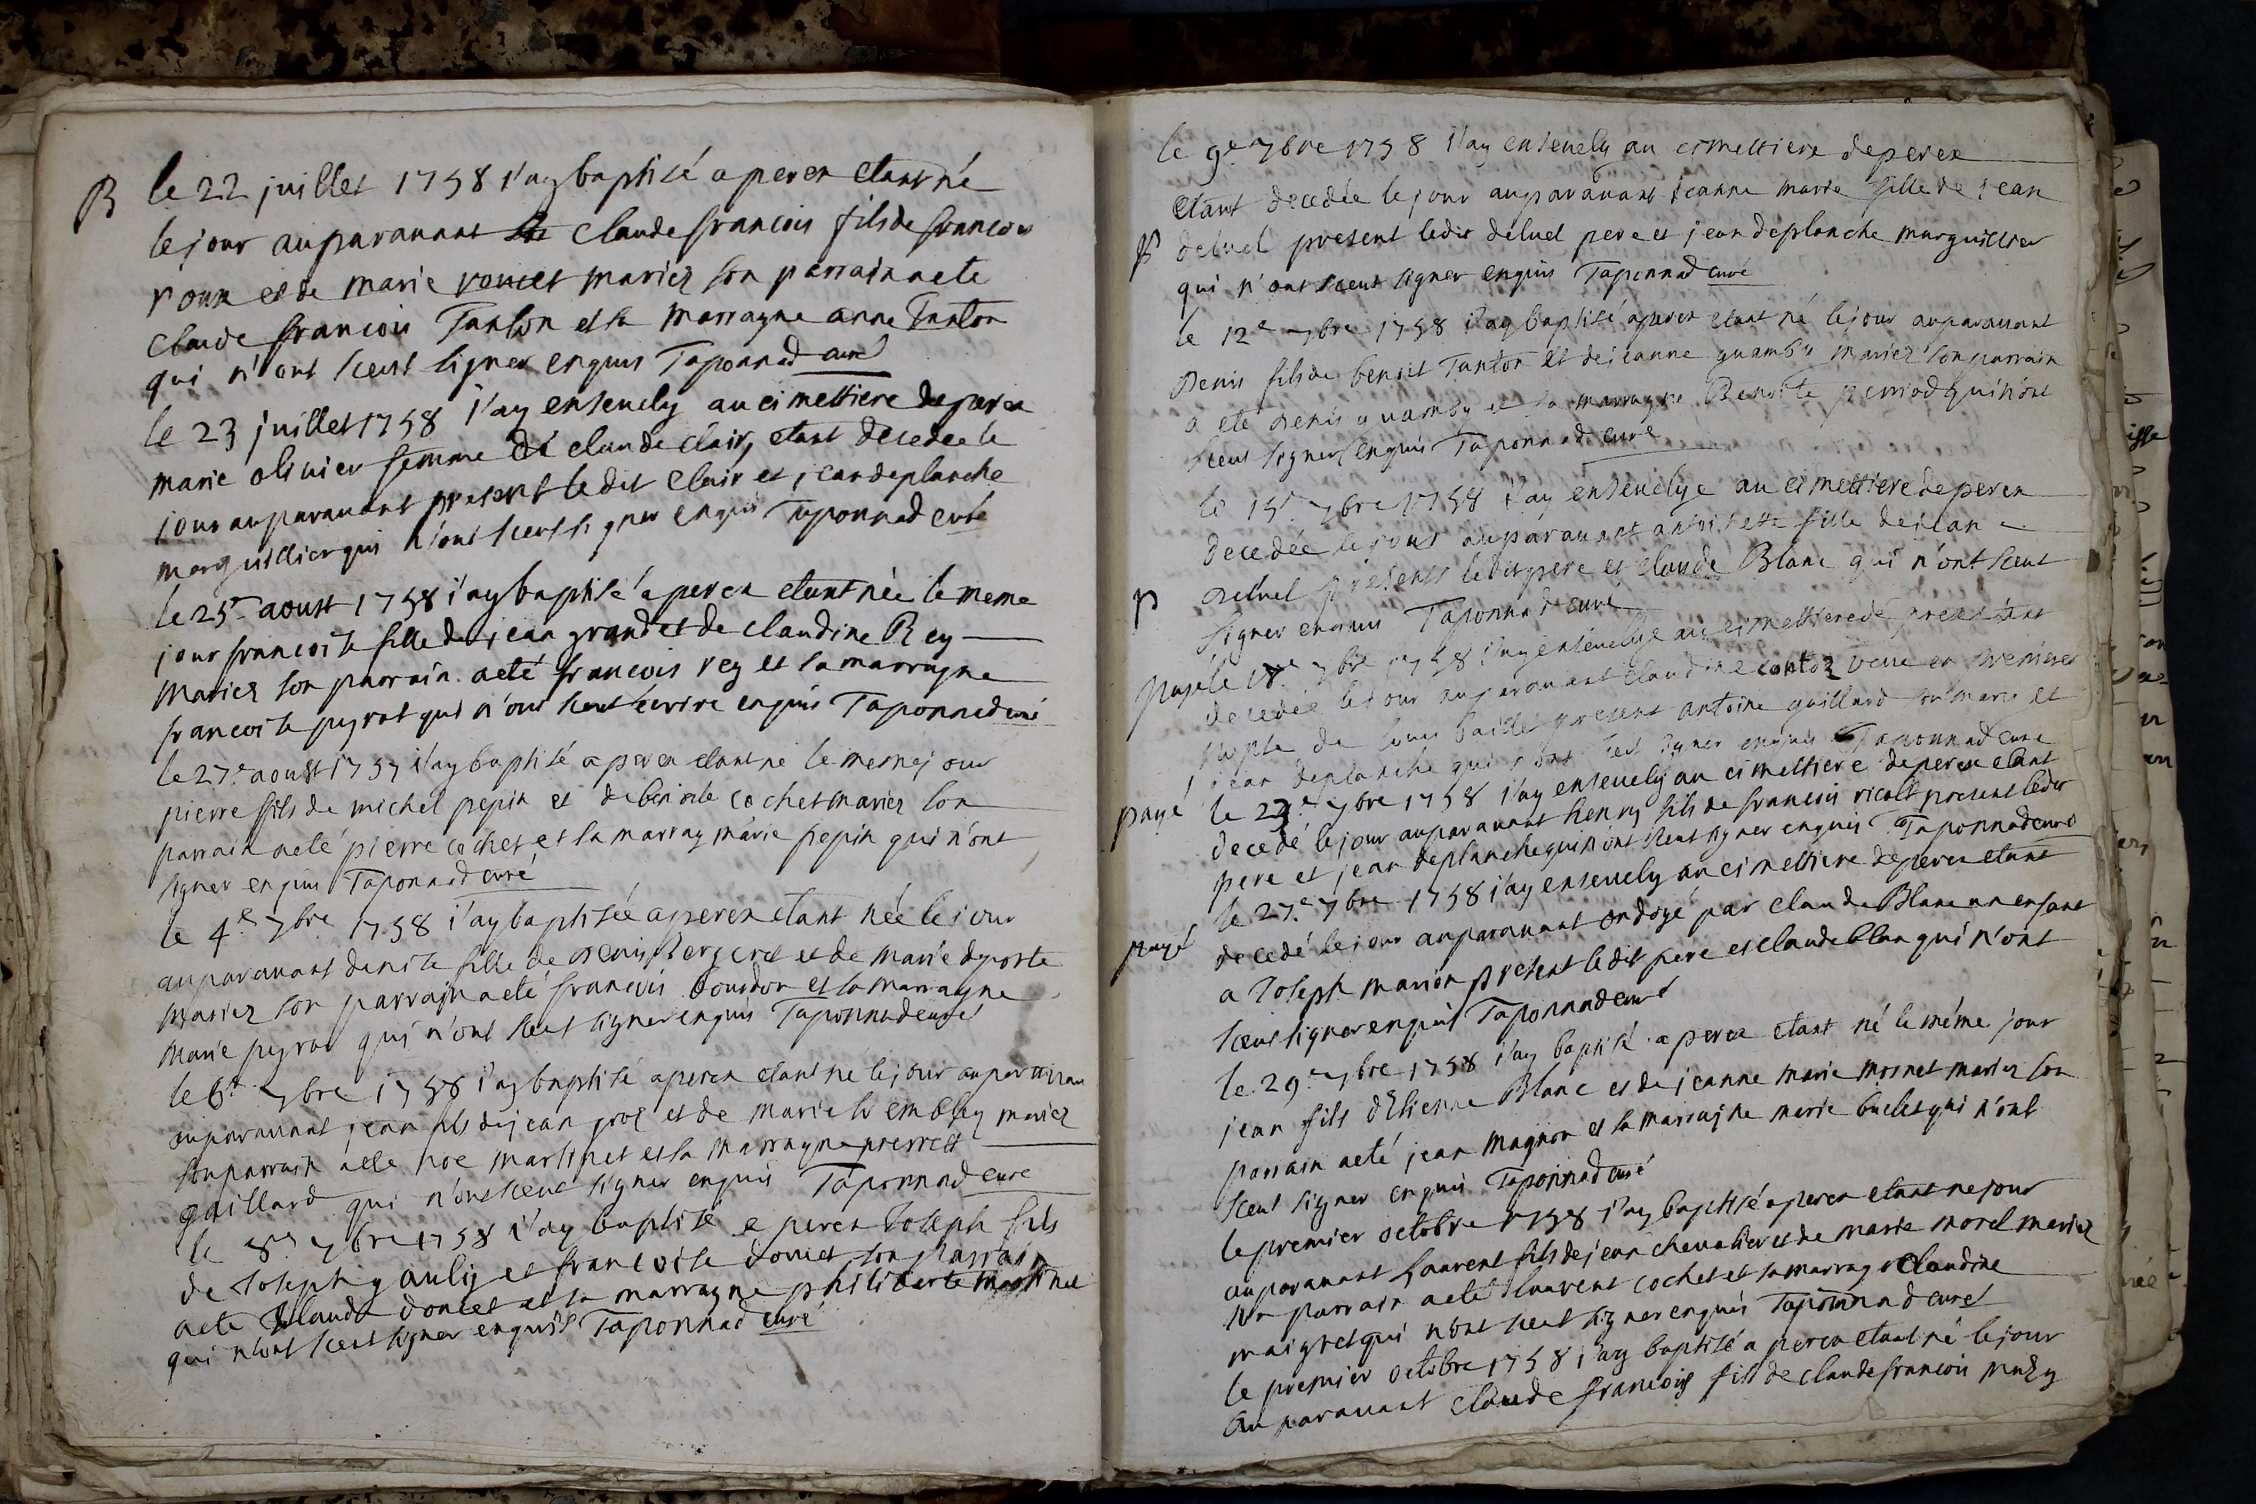 B
le 22 juillet 1758 j'ay baptisé a peren etant né
le jour auparauant claude francois fils de francois
et de marie mariez son parrain a ete
claude francois Tanton et sa marrayne anne Tanton
qui n'ont sceut signer enquis Taponnad curé
le 23 juillet 1758 j'ay enseuely au cimettiere de peren
marie oliuier femme de claude clair, etant decedee le
jour auparauant present ledit clair et jean deplanche
marguillier qui n'ont sceut signer enquis Taponnad curé
le 25e aoust 1758 j'ay baptisé a peren etant née le meme
jour francoise fille de jean grand et de claudine Rey
mariez son parrain a eté francois rey et sa marrayne
francoise peyrat qui n'ont sceut ecrire enquis Taponnad curé
le 27e aoust 1757 j'ay baptisé a peren etant né le meme jour
pierre fils de michel pepin et de benoite cochet mariez son
parrain a eté pierre cochet et sa marray marie pepin qui n'ont
signer enquis Taponnad curé
le 4e 7bre 1758 j'ay baptisée a peren etant née le jour
auparauant denise fille de denis Bergeret et de marie deporte
mariez son parrain a eté francois bourdon et sa marrayne
marie peyrat qui n'ont sceut signer enquis Taponnad curé
le 6e 7bre 1758 j'ay baptisé a peren etant né le jour auparauan
auparauant jean fils de jean groz et de marie mariez
son parrain a ete noe martinet et sa marrayne pierrett
gaillard qui n'ont sceut signer enquis Taponnad curé
le 8e 7bre 1758 j'ay baptisé a peren Joseph fils
de Joseph gauly et francoise doucet son parrain
a ete claude doucet et sa marrayne philiberte martinet
qui n'ont sceut signer enquis Taponnad curé
le 9e 7bre 1758 j'ay enseuely au cimettiere de peren
etant decedée le jour auparauant jeanne marie fille de jean
deluel present ledit deluel pere et jean deplanche marguillier
qui n'ont sceut signer enquis Taponnad curé
le 12e 7bre 1758 j'ay baptisé a peren etant né le jour auparauant
Denis fils de benoit Tanton et de jeanne guamby mariez son parrain
a eté denis guamby et sa marrayne Benoite perriod qui n'ont
sceut signer enquis Taponnad curé
le 15e 7bre 1758 j'ay enseuelye au cimettiere de peren
decedée le jour auparauant antoinette fille de jean
deluel presents ledit pere et claude Blanc qui n'ont sceut
signer enquis Taponnad curé
payé le 18e 7bre 1758 j'ay enseuelye au cimettiere de peren etant
decedée le jour auparauant claudine contoz veuue en premieres
nopse de louis present antoine guillard son mary et
jean deplanche qui n'ont sceut signer enquis Taponnad curé
payé
le 23e 7bre 1758 j'ay enseuely au cimettiere de peren etant
decedé le jour auparauant henry fils de francois ricolt present ledit
pere et jean deplanche qui n'ont sceut signer enquis Taponnad curé
le 27e 7bre 1758 j'ay enseuely au cimettiere de peren etant
payé
decedé le jour auparauant ondoyé par claude Blanc un enfant
a Joseph marion present ledit pere et claude blan qui n'ont
sceut signer enquis Taponnad curé
le 29e 7bre 1758 j'ay baptisé a peren etant né le méme jour
jean fils d'Etienne Blanc et de jeanne marie mornet mariez son
parrain a eté jean magnon et sa marrayne marie buclet qui n'ont
sceut signer enquis Taponnad curé
le premier octobre 1758 j'ay baptisé a peren etant ne jour
auparauant Laurent fils de jean cheualier et de marie morel mariez
son parrain a eté laurent cochet et sa marray claudine
maigret qui n'ont sceut signer enquis Taponnad curé
le premier octobre 1758 j'ay baptisé a peren etant né le jour
auparauant claude francois fils de claude francois